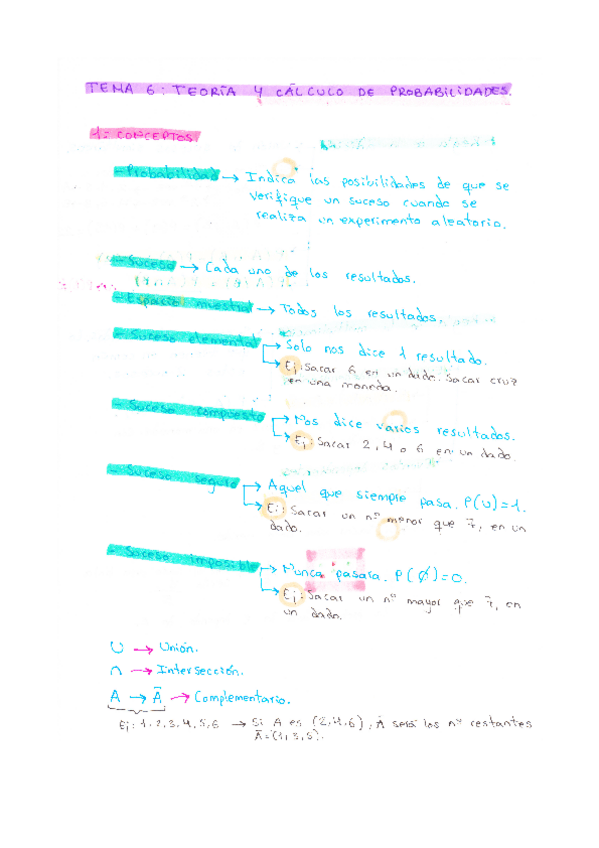 TEMA 6: TEORÍA Y CÁLCULO DE PROBABILIDADES.
1: CONCEPTOS
- Probabilidad → Indica las posibilidades de que se
verifique un suceso cuando se
realiza un experimento aleatorio.
- Suceso → Cada uno de los resultados.
- Espacio muestral → Todos los resultados.
- Suceso elemental → Solo nos dice 1 resultado.
→ Ej: Sacar 6 en un dado. Sacar cruz
en una moneda.
- Suceso compuesto → Nos dice varios resultados.
→ Ej: Sacar 2, 4 o 6 en un dado.
- Suceso seguro → Aquel que siempre pasa. P(U)=1.
→ Ej: Sacar un nº menor que 7, en un
dado.
- Suceso imposible → Nunca pasara. P(∅)=0.
→ Ej: Sacar un nº mayor que 7, en
un dado.
∪ → Unión.
∩ → Intersección.
A → Ā → Complementario.
Ej: 1, 2, 3, 4, 5, 6 → Si A es (2, 4, 6), Ā será los nº restantes
Ā = (1, 3, 5).